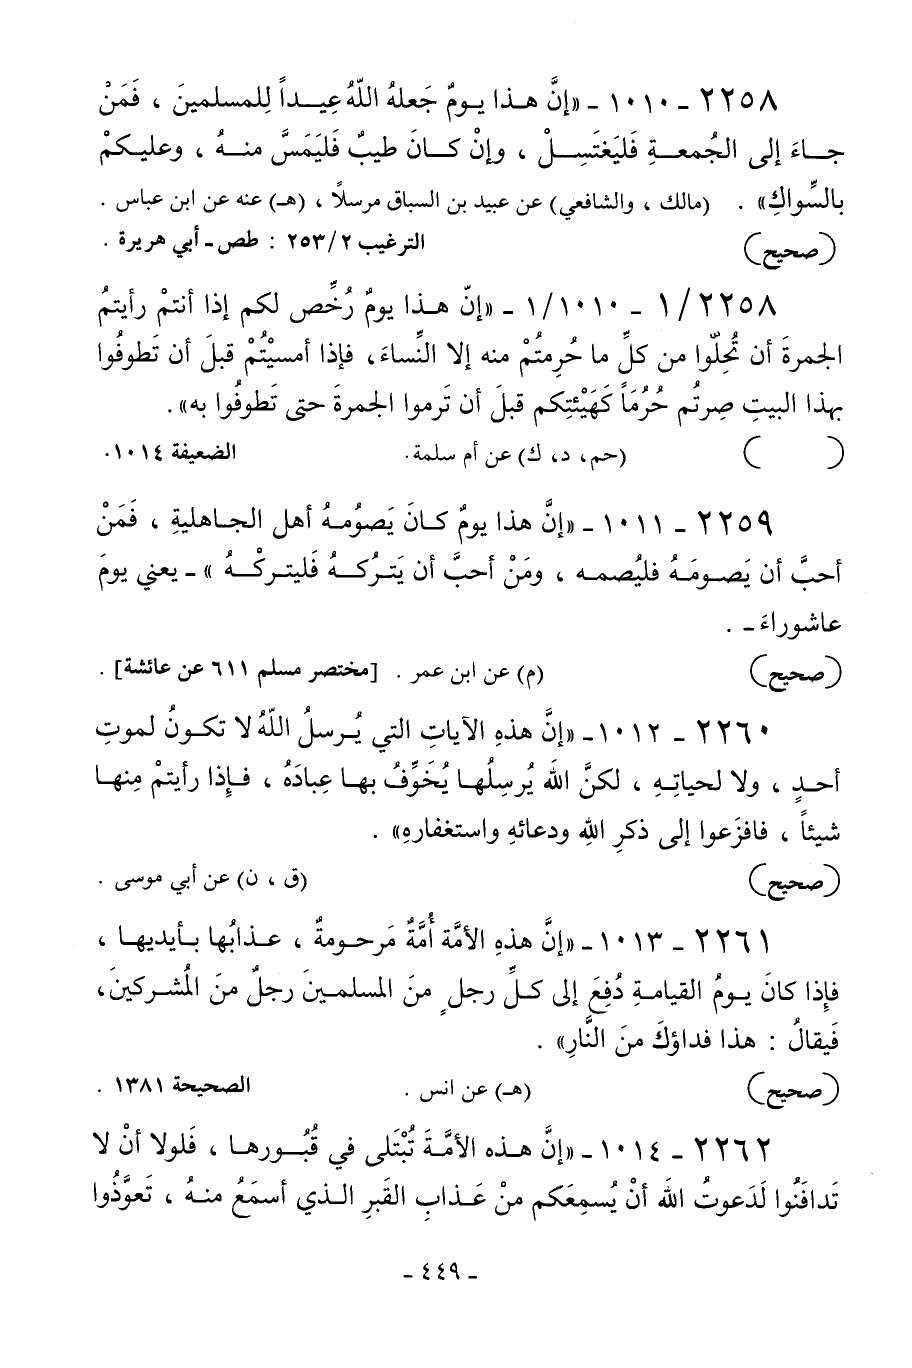 ٢٢٥٨ - ١٠١٠ - «إنَّ هـذا يـومٌ جَعلهُ اللّهُ عِيـداً لِلمسلمينَ ، فَمَنْ
جـاءَ إلى الجُمعـةِ فَليَغتَسِـلْ ، وإنْ كـانَ طيبٌ فَليَمَسَّ منـهُ ، وعليكمْ
بالسِّواكِ» . (مالك ، والشافعي) عن عبيد بن السباق مرسلاً ، (هـ) عنه عن ابن عباس .
(صحيح) الترغيب ٢٥٣/٢ : طص - أبي هريرة .
١/٢٢٥٨ - ١/١٠١٠ - «إنّ هـذا يومٌ رُخِّص لكم إذا أنتمْ رأيتمُ
الجمرةَ أن تُحِلّوا من كلِّ ما حُرِمتُمْ منه إلا النِّساءَ، فإذا أمسيْتُمْ قبلَ أن تَطوفُوا
بهذا البيتِ صِرتُم حُرُمَاً كَهَيْئتِكم قبلَ أن تَرموا الجمرةَ حتى تَطوفُوا به».
( ) (حم، د، ك) عن أم سلمة. الضعيفة ١٠١٤.
٢٢٥٩ - ١٠١١ - «إنَّ هذا يومٌ كـانَ يَصوُمـهُ أهل الجـاهليةِ ، فَمَنْ
أحبَّ أن يَصـومَـهُ فليُصمـه ، ومَنْ أحبَّ أن يَتركـهُ فَليتركْـهُ » - يعني يومَ
عاشوراءَ - .
(صحيح) (م) عن ابن عمر . [مختصر مسلم ٦١١ عن عائشة] .
٢٢٦٠ - ١٠١٢ - «إنَّ هذهِ الآياتِ التي يُـرسلُ اللّهُ لا تكـونُ لموتِ
أحـدٍ ، ولا لحياتِـهِ ، لكنَّ اللهَ يُرسِلُهـا يُخَوِّفُ بهـا عِبادَهُ ، فـإذا رأيتمْ مِنهـا
شيئاً ، فافزَعوا إلى ذكرِ اللهِ ودعائهِ واستغفارهِ» .
(صحيح) (ق ، ن) عن أبي موسى .
٢٢٦١ - ١٠١٣ - «إنَّ هذهِ الأمَّة أُمَّةٌ مَرحـومةٌ ، عـذابُها بـأيديهـا ،
فإذا كانَ يـومُ القيامـةِ دُفِعَ إلى كـلِّ رجلٍ منَ المسلمـينَ رجلٌ منَ المُشـركينَ،
فَيقالُ : هذا فداؤكَ منَ النَّارِ» .
(صحيح) (هـ) عن انس . الصحيحة ١٣٨١ .
٢٢٦٢ - ١٠١٤ - «إنَّ هـذه الأمَّـةَ تُبْتَلى في قُبُـورهـا ، فَلولا أنْ لا
تَدافَنُوا لَدَعوتُ اللهَ أنْ يُسمِعَكم منْ عَـذابِ القَبرِ الـذي أسمَعُ منـهُ ، تَعوَّذُوا
- ٤٤٩ -